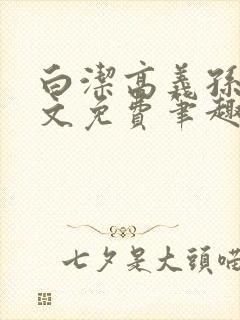 白潔高義孫
文免費筆趣
七夕是大頭喵